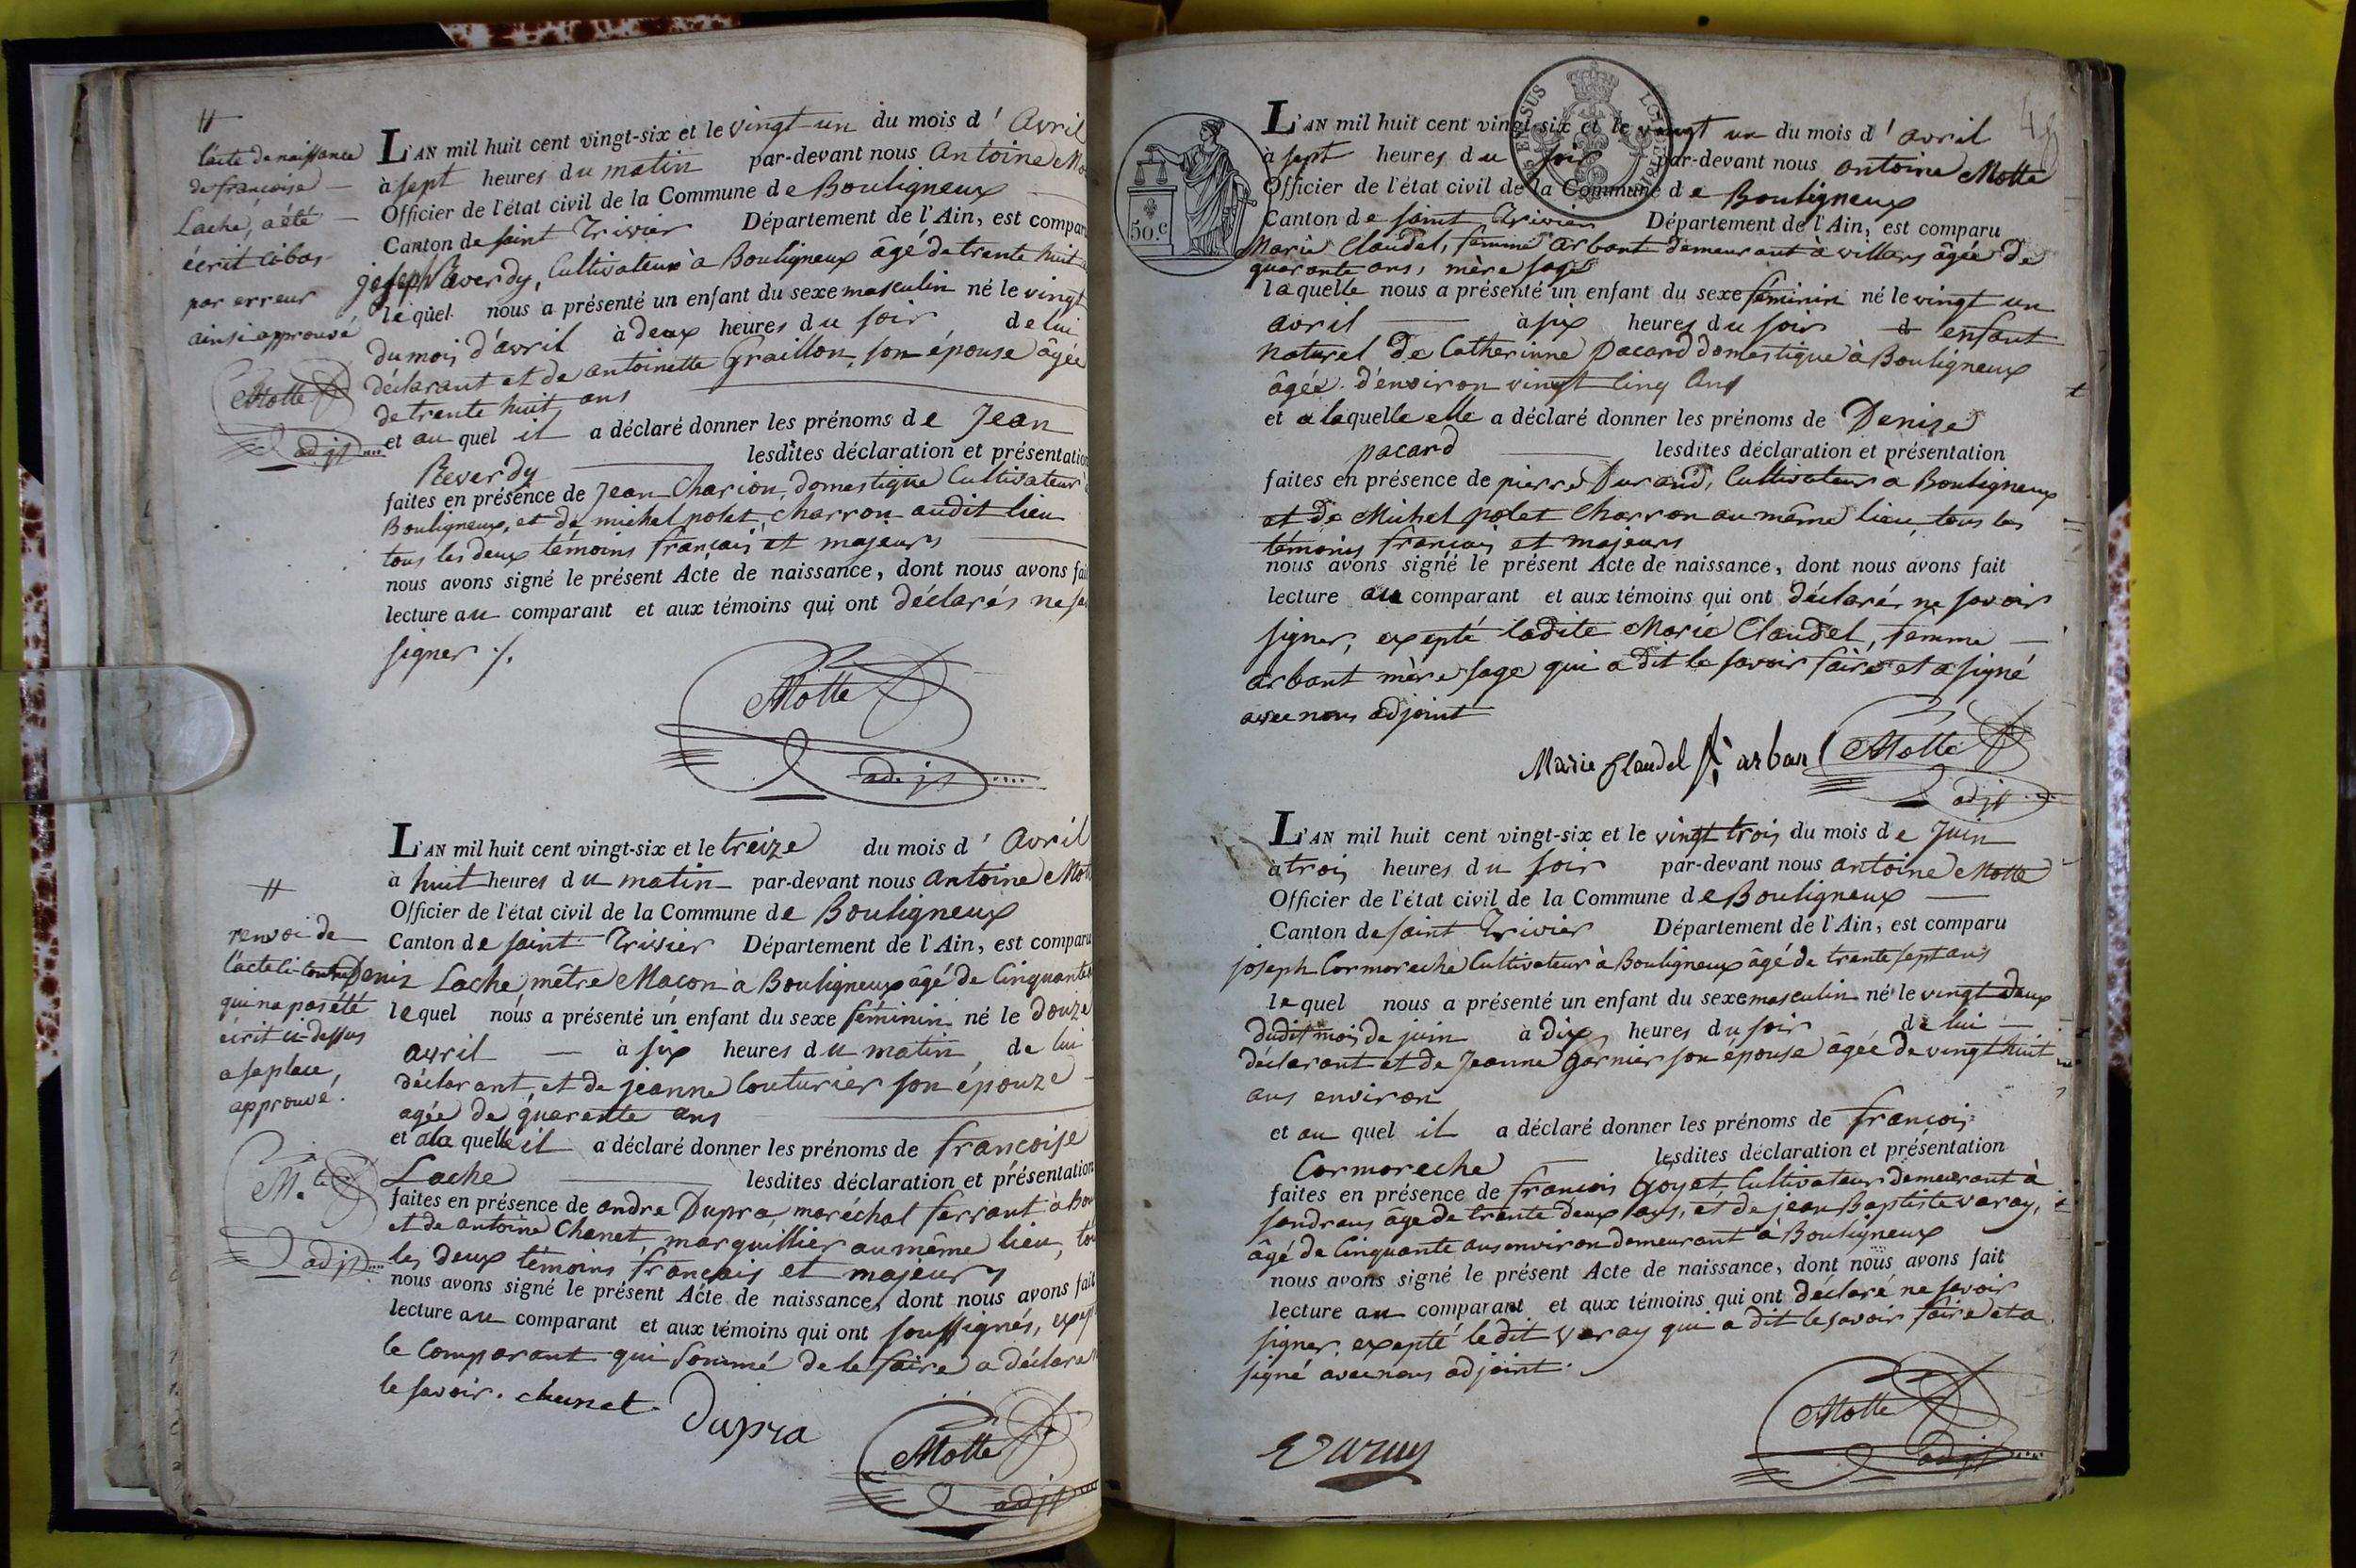 #
l'acte de naissance
de françoise
Lache, a été
écrit cibas
par erreur
ainsi approuvé
Motte
adjt
L'AN mil huit cent vingt-six et le vingt un du mois d' Avril
à sept heures du matin par-devant nous Antoine Mo
Officier de l'état civil de la Commune de Bouligneux
Canton de saint Trivier Département de l'Ain, est compar
joseph Reverdy, Cultivateur à Bouligneux âgé de trente huit
lequel nous a présenté un enfant du sexe masculin né le vingt
du mois d'avril à deux heures du soir de lui
déclarant et de antoinette Graillon, son épouse âgée
de trente huit ans
et au quel il a déclaré donner les prénoms de Jean
Reverdy lesdites déclaration et présentation
faites en présence de Jean Charion, domestique Cultivateur
Bouligneux, et de michel polet, charron audit lieu
tous les deux témoins français et majeurs
nous avons signé le présent Acte de naissance, dont nous avons fai
lecture au comparant et aux témoins qui ont déclarés ne sa
signer ./.
Motte
adjt
#
renvoi de
l'acte ci-contre
qui na pas été
écrit ci-dessus
a sa place,
approuvé.
M.te
adjt
L'AN mil huit cent vingt-six et le treize du mois d' Avril
à huit heures du matin par-devant nous Antoine Mott
Officier de l'état civil de la Commune de Bouligneux
Canton de saint Trivier Département de l'Ain, est comparu
Deniz Lache, mêtre Maçon à Bouligneux âgé de Cinquante
lequel nous a présenté un enfant du sexe féminin né le douze
avril à six heures du matin de lui
déclarant et de jeanne Couturier son épouze
agée de quarente ans
et ala quelle il a déclaré donner les prénoms de francoise
Lache lesdites déclaration et présentation
faites en présence de andre Dupra, maréchal ferrant à Bou
et de antoine Chanet, marguillier au même lieu, tou
les deux témoins français et majeurs
nous avons signé le présent Acte de naissance, dont nous avons fait
lecture au comparant et aux témoins qui ont soussignés, exep
le Comparant qui sommé de le faire a déclaré n
le savoir. chanet. Dupra
Motte
adjt
48
50.c
L'AN mil huit cent vingt-six et le vingt un du mois d' avril
à sept heures du soir par-devant nous antoine Motte
Officier de l'état civil de la Commune de Bouligneux
Canton de saint Trivier Département de l'Ain, est comparu
Marie Claudel, femme arbant demeurant à villars âgée de
quarante ans, mère sage
laquelle nous a présenté un enfant du sexe féminin né le vingt un
avril à six heures du soir d enfant
naturel de Catherinne pacard domestique à Bouligneux
âgée d'environ vingt Cinq Ans
et a laquelle elle a déclaré donner les prénoms de Denize
pacard lesdites déclaration et présentation
faites en présence de pierre Durand, Cultivateur à Bouligneux
et de Michel polet Charron au même lieu tous les
témoins français et majeurs
nous avons signé le présent Acte de naissance, dont nous avons fait
lecture au comparant et aux témoins qui ont déclaré ne savoir
signer, exepté ladite Marie Claudel, femme
arbant mère sage qui a dit le savoir faire et a signé
avec nous adjoint
Marie Claudel f.e arban Motte
adjt
L'AN mil huit cent vingt-six et le vingt trois du mois de Juin
à trois heures du soir par-devant nous antoine Motte
Officier de l'état civil de la Commune de Bouligneux
Canton de saint Trivier Département de l'Ain, est comparu
joseph Cormoreche Cultivateur à Bouligneux âgé de trente sept ans
lequel nous a présenté un enfant du sexe masculin né le vingt deux
dudit mois de juin à dix heures du soir de lui
déclarant et de Jeanne Garnier son épouse âgée de vingt huit
ans environ
et au quel il a déclaré donner les prénoms de françois
Cormoreche lesdites déclaration et présentation
faites en présence de françois Goyet Cultivateur demeurant à
sandrans âge de trente deux ans, et de jean Baptiste varay,
âgé de Cinquante ans environ demeurant à Bouligneux
nous avons signé le présent Acte de naissance, dont nous avons fait
lecture au comparant et aux témoins qui ont déclaré ne savoir
signer, exepté ledit varay qui a dit le savoir faire et a
signé avec nous adjoint.
Varay
Motte
adjt